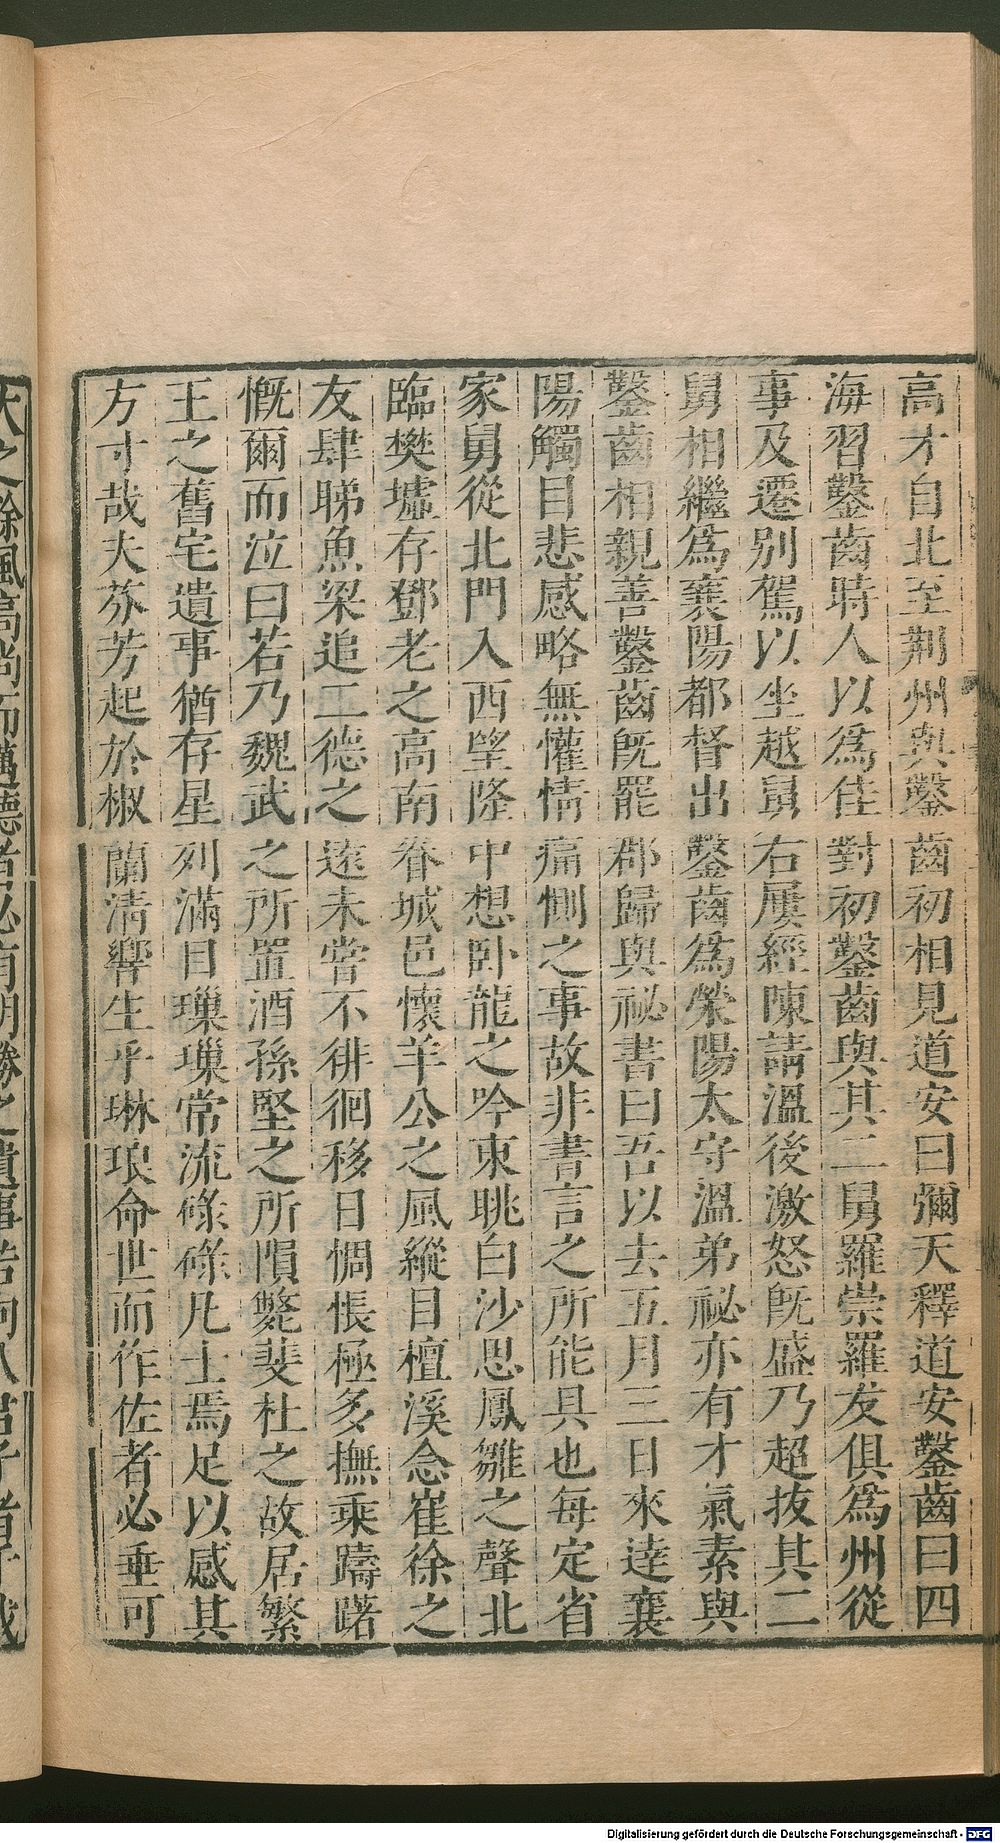 高才自北至荆州與鑿齒初相見道安曰彌天釋道安鑿齒曰四
海習鑿齒時人以爲佳對初鑿齒與其二舅羅崇羅友俱爲州從
事及遷別駕以坐越舅右屢經陳請溫後激怒旣盛乃超拔其二
舅相繼爲襄陽都督出鑿齒爲滎陽太守溫弟祕亦有才氣素與
鑿齒相親善鑿齒旣罷郡歸與祕書曰吾以去五月三日來逹襄
陽觸目悲感略無懽情痛惻之事故非書言之所能具也每定省
家舅從北門入西望隆中想卧龍之吟東眺白沙思鳳雛之聲北
臨樊墟存鄧老之高南眷城邑懷羊公之風縱目檀溪念崔徐之
友肆睇魚梁追二德之遠未嘗不徘徊移日惆悵極多撫乘躊曙
慨爾而泣曰若乃魏武之所置酒孫堅之所隕斃裴杜之故居繁
王之舊宅遺事猶存星列滿目璅璅常流碌碌凡士焉足以感其
方寸哉夫芬芳起於椒蘭淸響生乎琳琅命世而作佐者必垂可
大之餘風高尚而邁德者必有明勝之遺事若向八君子者千載
Digitalisierung gefördert durch die Deutsche Forschungsgemeinschaft - DFG